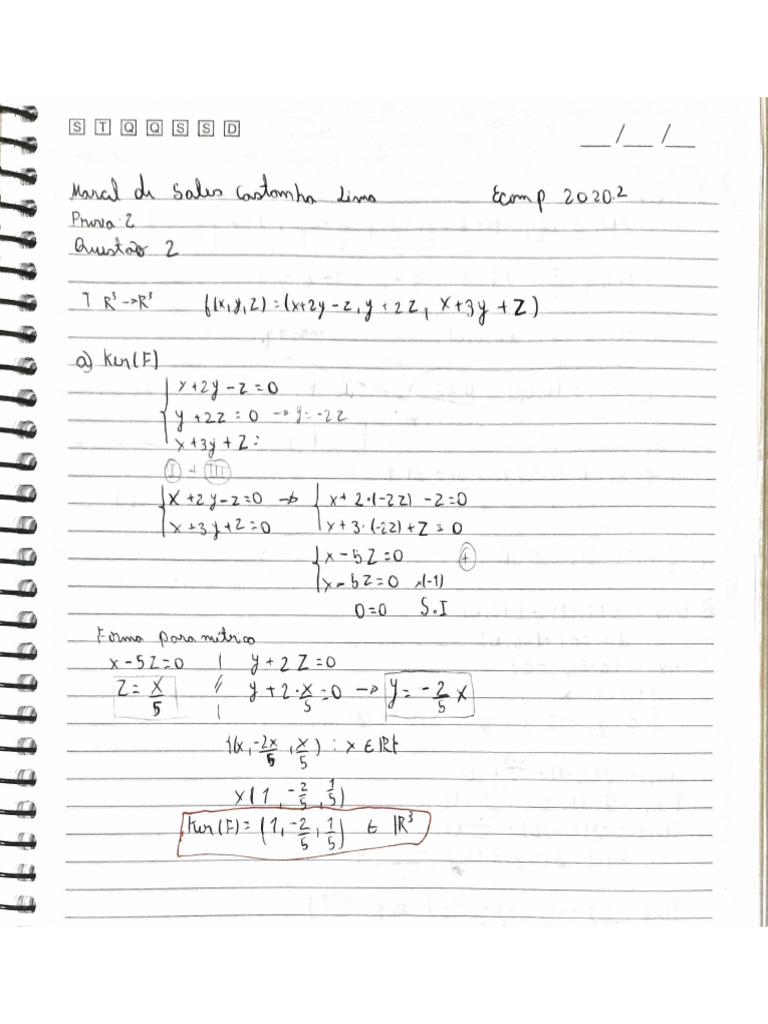 S T Q Q S S D
__/__/__
Marcel de Sales Castanha Lima Ecomp 2020.2
Prova 2
Questão 2
T R³→R³ f(x,y,z)=(x+2y-z, y+2z, x+3y+z)
a) Ker(F)
{x+2y-z=0
{y+2z=0 → y=-2z
{x+3y+z=
I + III
{x+2y-z=0 → {x+2·(-2z)-z=0
{x+3y+z=0 {x+3·(-2z)+z=0
{x-5z=0 +
{x-5z=0 x(-1)
0=0 S.I
Forma paramétrica
x-5z=0 | y+2z=0
z=x/5 // y+2·x/5=0 → y=-2/5 x
{(x, -2x/5, x/5) : x ∈ R}
x(1, -2/5, 1/5)
Ker(F)=(1, -2/5, 1/5) ∈ R³